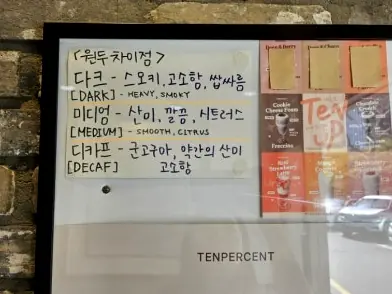 <원두 차이점>
다크 - 스모키, 고소함, 쌉싸름
[DARK] - HEAVY, SMOKY
미디엄 - 산미, 깔끔, 시트러스
[MEDIUM] - SMOOTH, CITRUS
디카프 - 군고구마, 약간의 산미
[DECAF] 고소함
TENPERCENT
Cookie
Cheese Foam
Freccino
Real
Strawberry
Latte